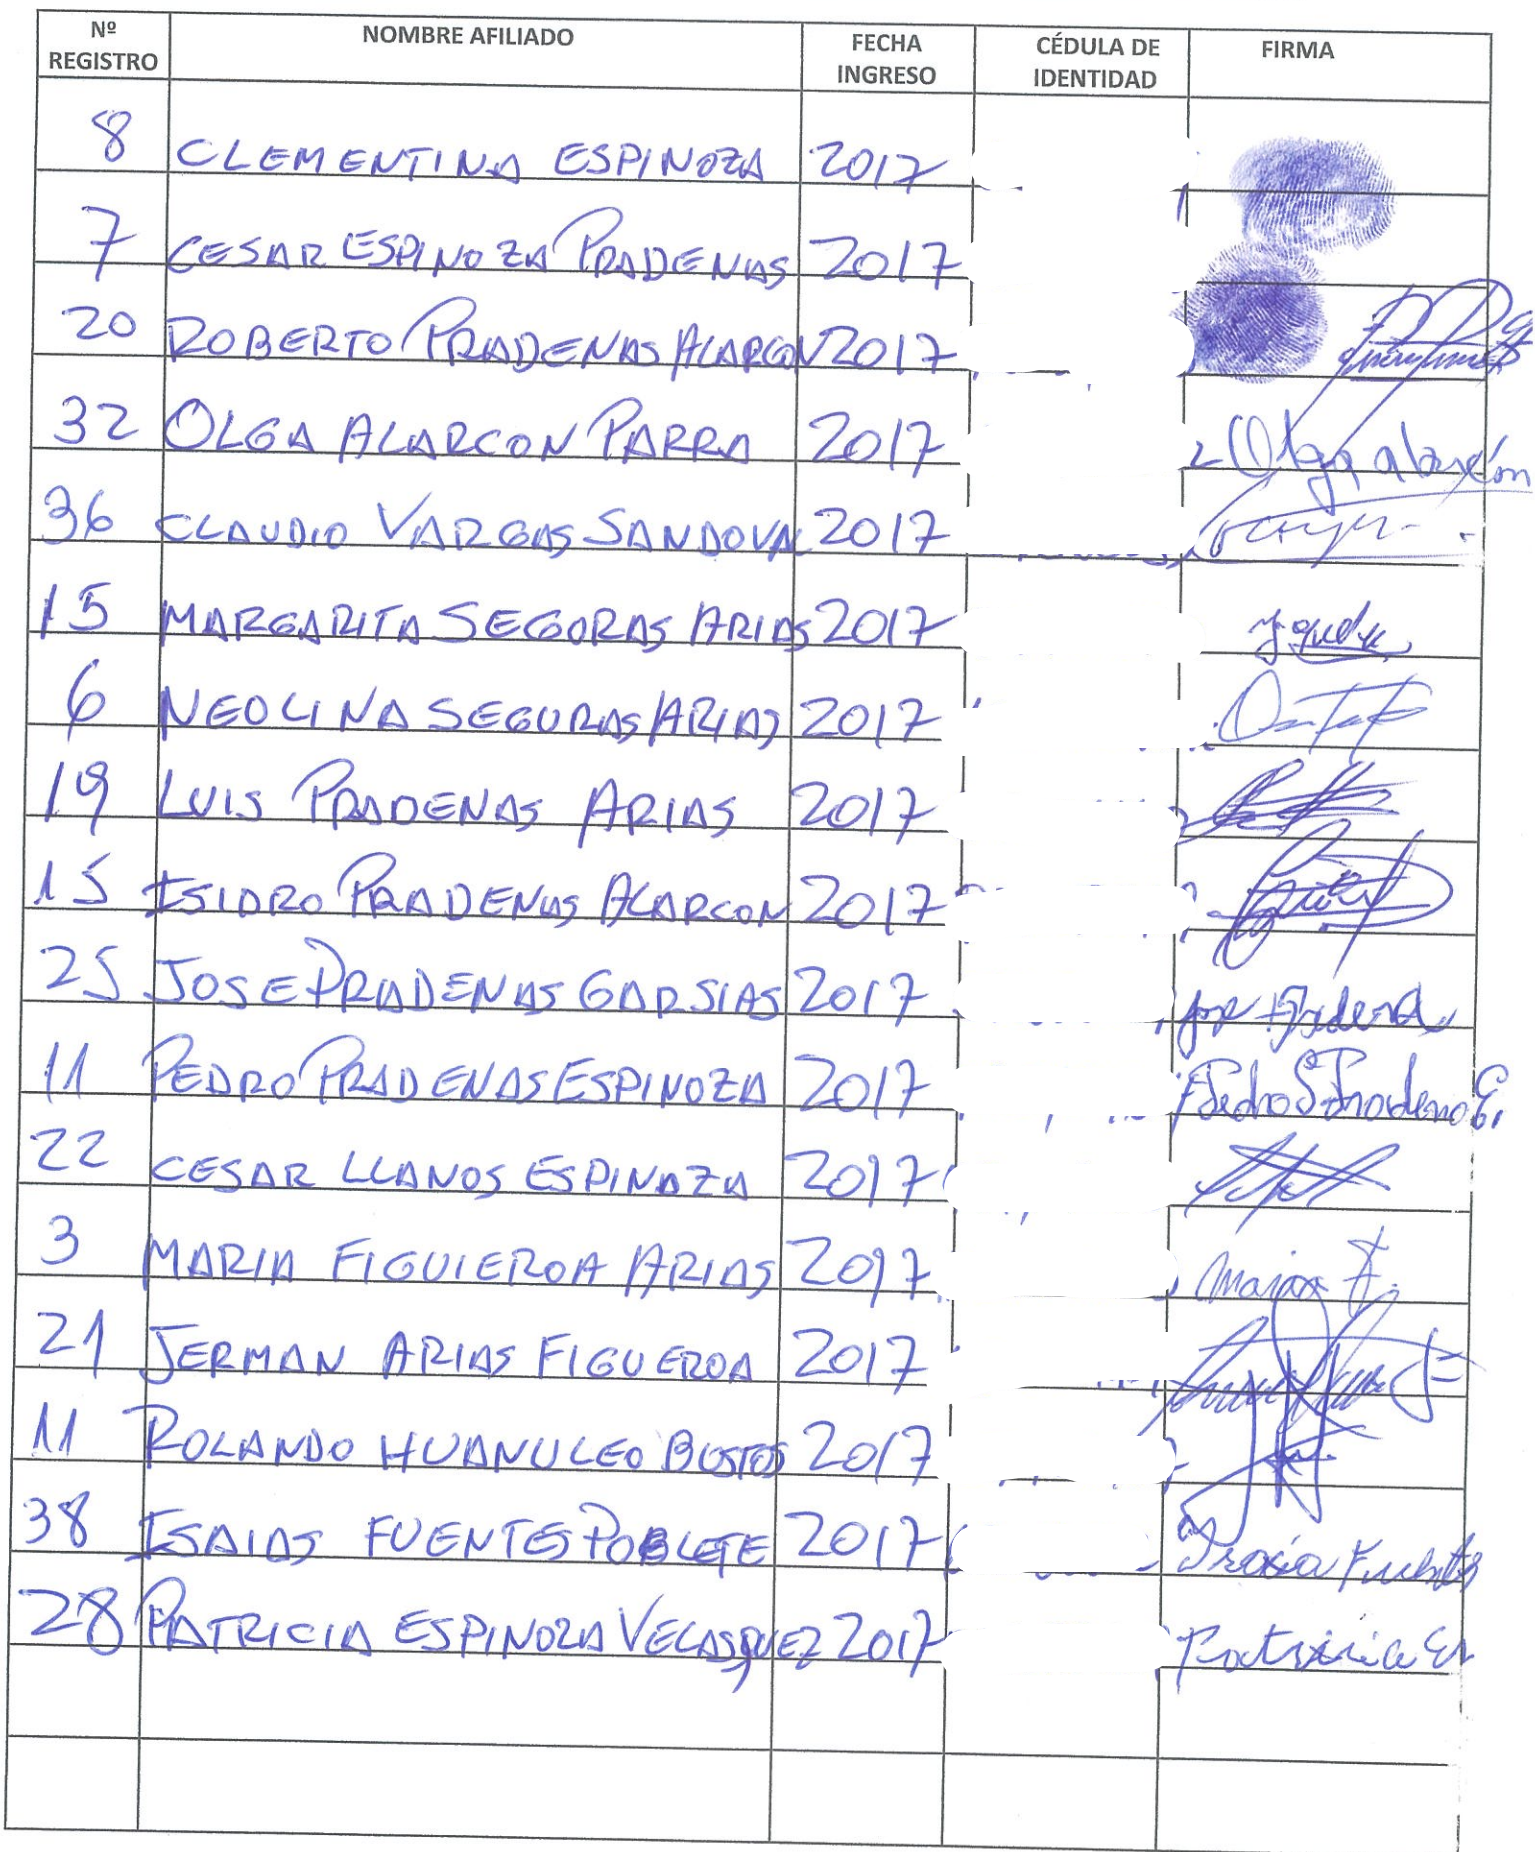 Nº REGISTRO NOMBRE AFILIADO FECHA INGRESO CÉDULA DE IDENTIDAD FIRMA
8 CLEMENTINA ESPINOZA 2017
7 CESAR ESPINOZA PRADENAS 2017
20 ROBERTO PRADENAS ALARCON 2017
32 OLGA ALARCON PARRA 2017 Olga alarcón
36 CLAUDIO VARGAS SANDOVAL 2017
15 MARGARITA SEGORAS ARIAS 2017
6 NEOLINA SEGURAS ARIAS 2017
19 LUIS PRADENAS ARIAS 2017
15 ISIDRO PRADENAS ALARCON 2017
25 JOSE PRADENAS GARSIAS 2017
11 PEDRO PRADENAS ESPINOZA 2017 Pedro
22 CESAR LLANOS ESPINAZA 2017
3 MARIA FIGUIEROA ARIAS 2017 Maria F.
21 JERMAN ARIAS FIGUEROA 2017
11 ROLANDO HUANULEO BUSTOS 2017
38 ISAIAS FUENTES POBLETE 2017 Fuentes
28 PATRICIA ESPINOZA VELASQUEZ 2017 Patricia Es